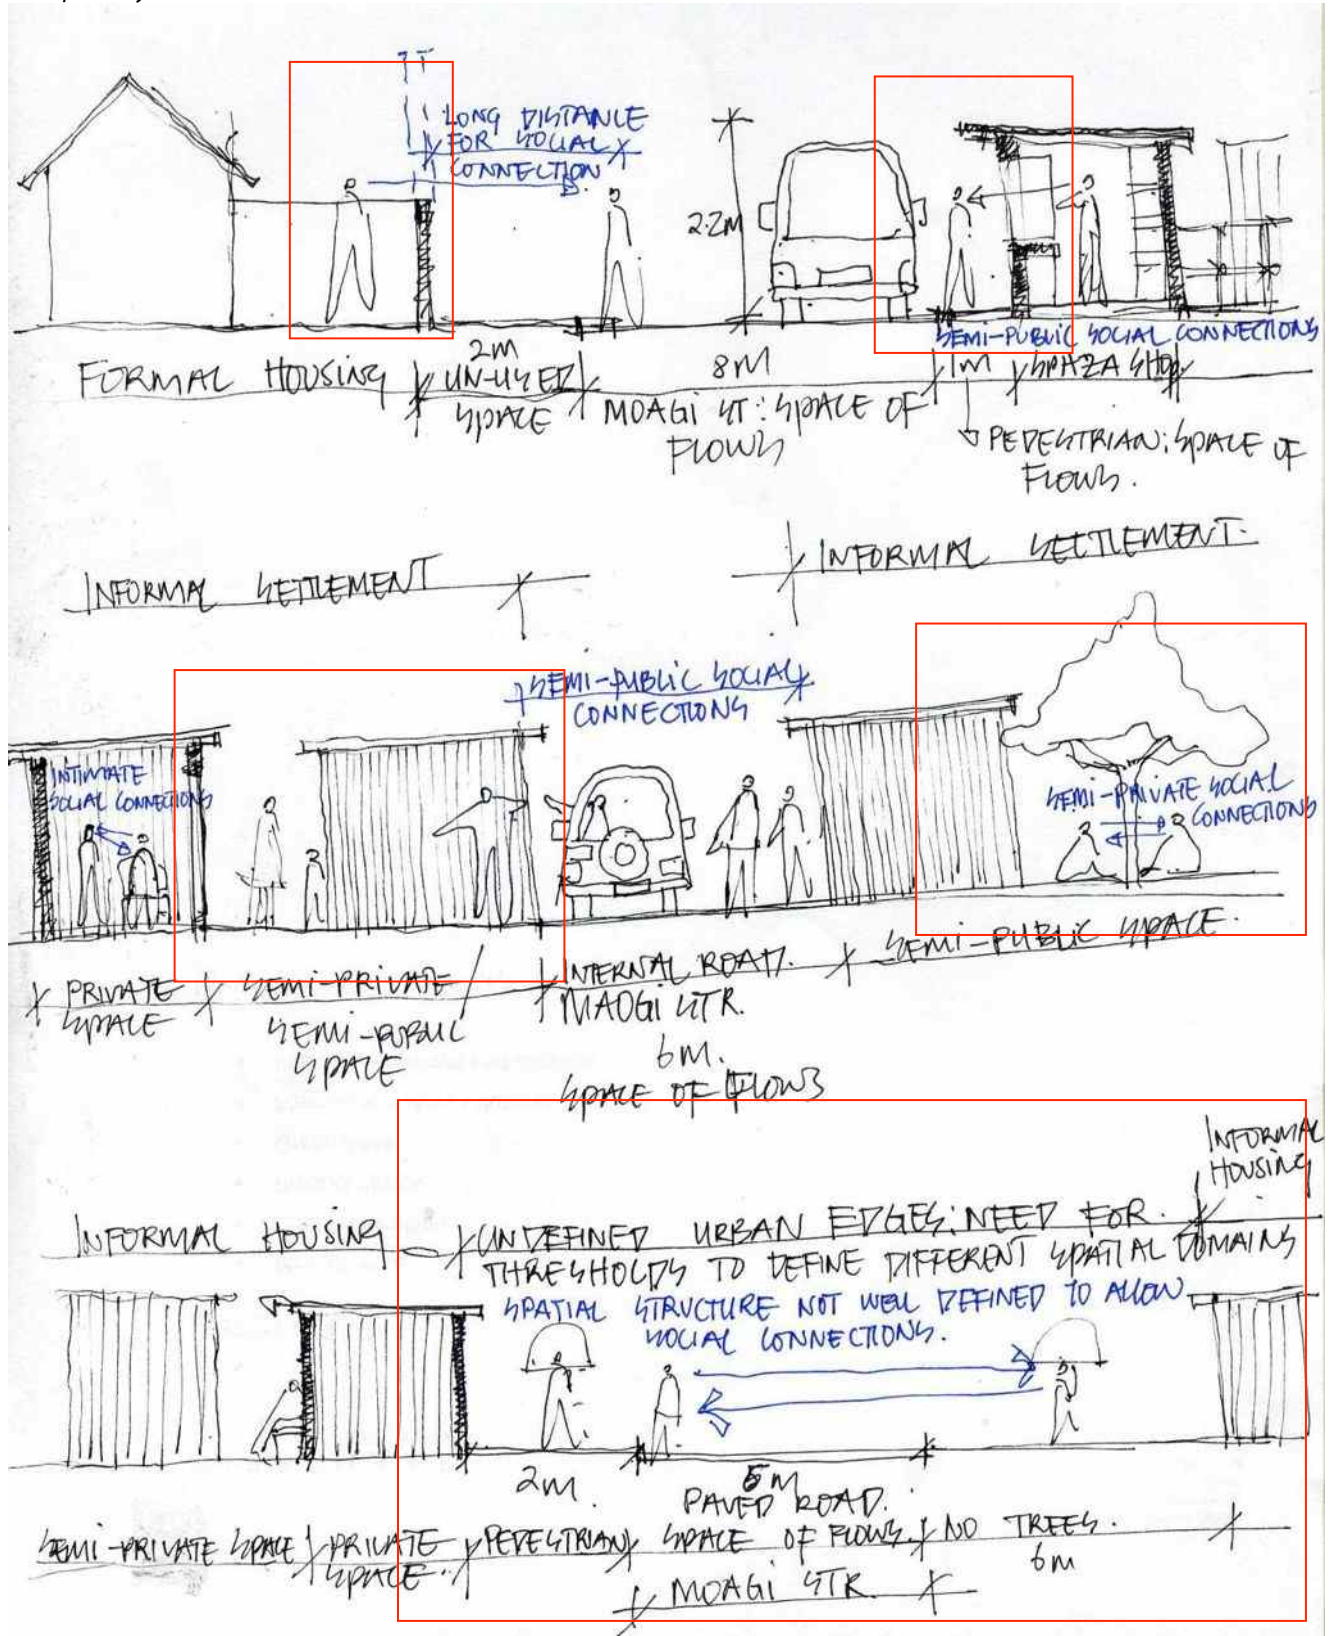 LONG DISTANCE
FOR SOCIAL
CONNECTION
2.2M
SEMI-PUBLIC SOCIAL CONNECTIONS
FORMAL HOUSING
2M
UN-USED
SPACE
8M
MOAGI ST: SPACE OF
FLOWS
1M
SPAZA SHOP
PEDESTRIAN: SPACE OF
FLOWS.
INFORMAL SETTLEMENT
INFORMAL SETTLEMENT.
SEMI-PUBLIC SOCIAL
CONNECTIONS
INTIMATE
SOCIAL CONNECTIONS
SEMI-PRIVATE SOCIAL
CONNECTIONS
PRIVATE
SPACE
SEMI-PRIVATE /
SEMI-PUBLIC
SPACE
INTERNAL ROAD.
MAOGI STR.
6M.
SPACE OF FLOWS
SEMI-PUBLIC SPACE.
INFORMAL
HOUSING
INFORMAL HOUSING
UNDEFINED URBAN EDGES: NEED FOR
THRESHOLDS TO DEFINE DIFFERENT SPATIAL DOMAINS
SPATIAL STRUCTURE NOT WELL DEFINED TO ALLOW
SOCIAL CONNECTIONS.
2M.
5M
PAVED ROAD.
SEMI-PRIVATE SPACE
PRIVATE
SPACE.
PEDESTRIAN
SPACE OF FLOWS.
NO TREES.
6M
MOAGI STR.